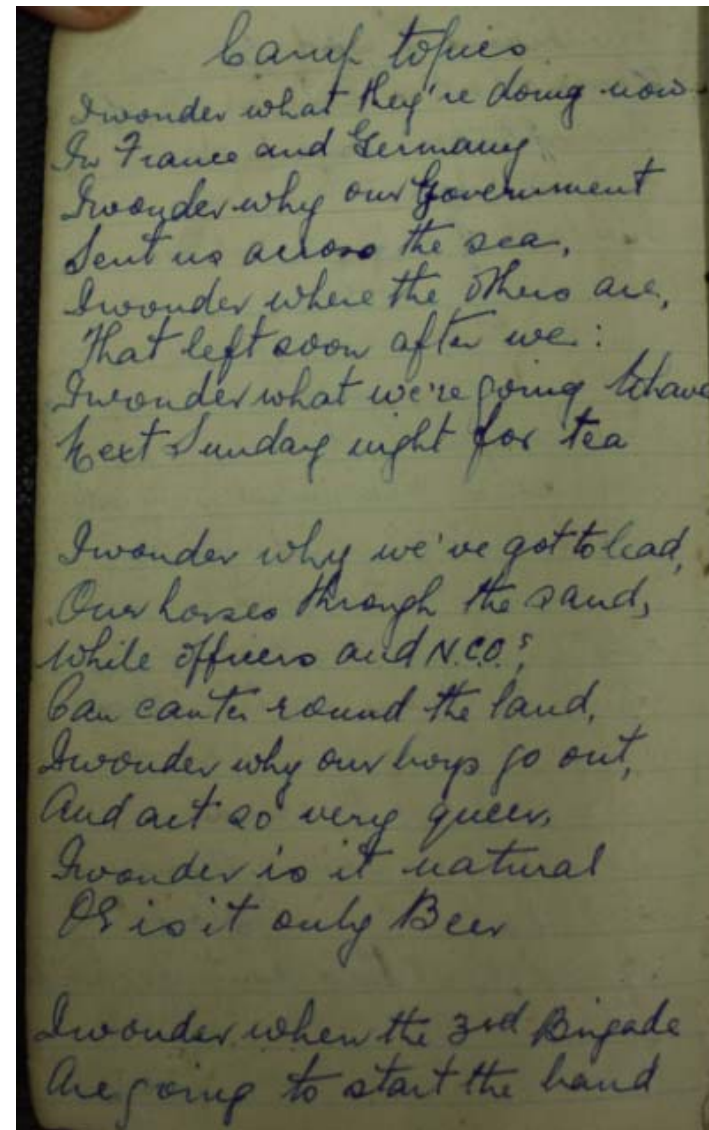 Camp topics
I wonder what they're doing now
In France and Germany
I wonder why our Government
Sent us across the sea,
I wonder where the others are,
That left soon after we:
I wonder what we're going to have
Next Sunday night for tea
I wonder why we've got to lead,
Our horses through the sand,
While officers and N.C.O.s,
Can canter round the land,
I wonder why our boys go out,
And act so very queer,
I wonder is it natural
Or is it only Beer
I wonder when the 3rd Brigade
Are going to start the band